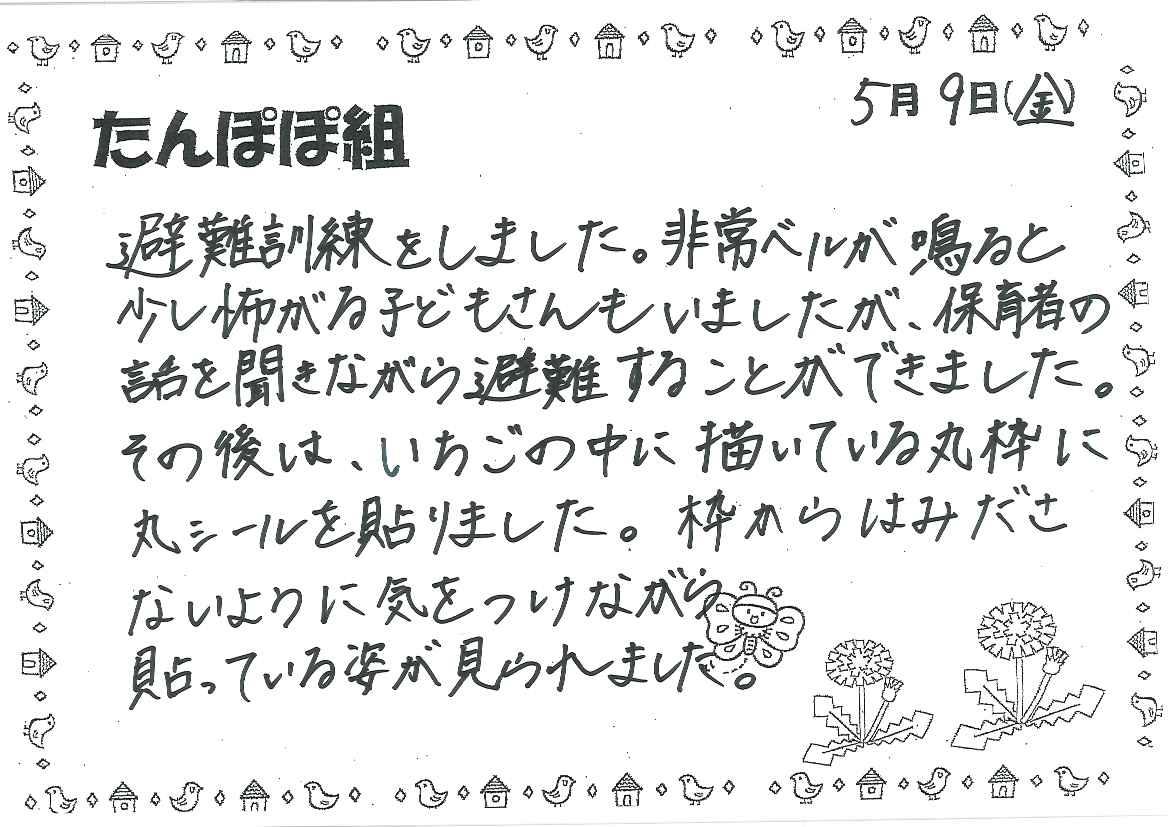 5月9日(金)
たんぽぽ組
避難訓練をしました。非常ベルが鳴ると
少し怖がる子どもさんもいましたが、保育者の
話を聞きながら避難することができました。
その後は、いちごの中に描いている丸枠に
丸シールを貼りました。枠からはみださ
ないように気をつけながら
貼っている姿が見られました。